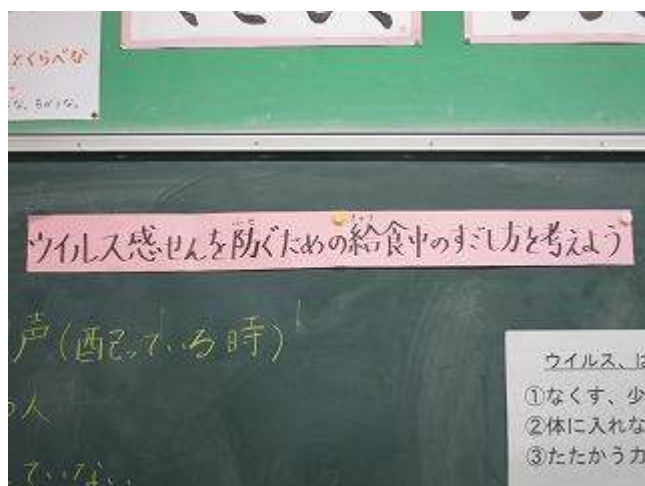 とくらべな
ウイルス感せんを防ぐための給食中のすごし方を考えよう
声(配っている時)
人
ていない
ウイルス、は
①なくす、少
②体に入れな
③たたかう力